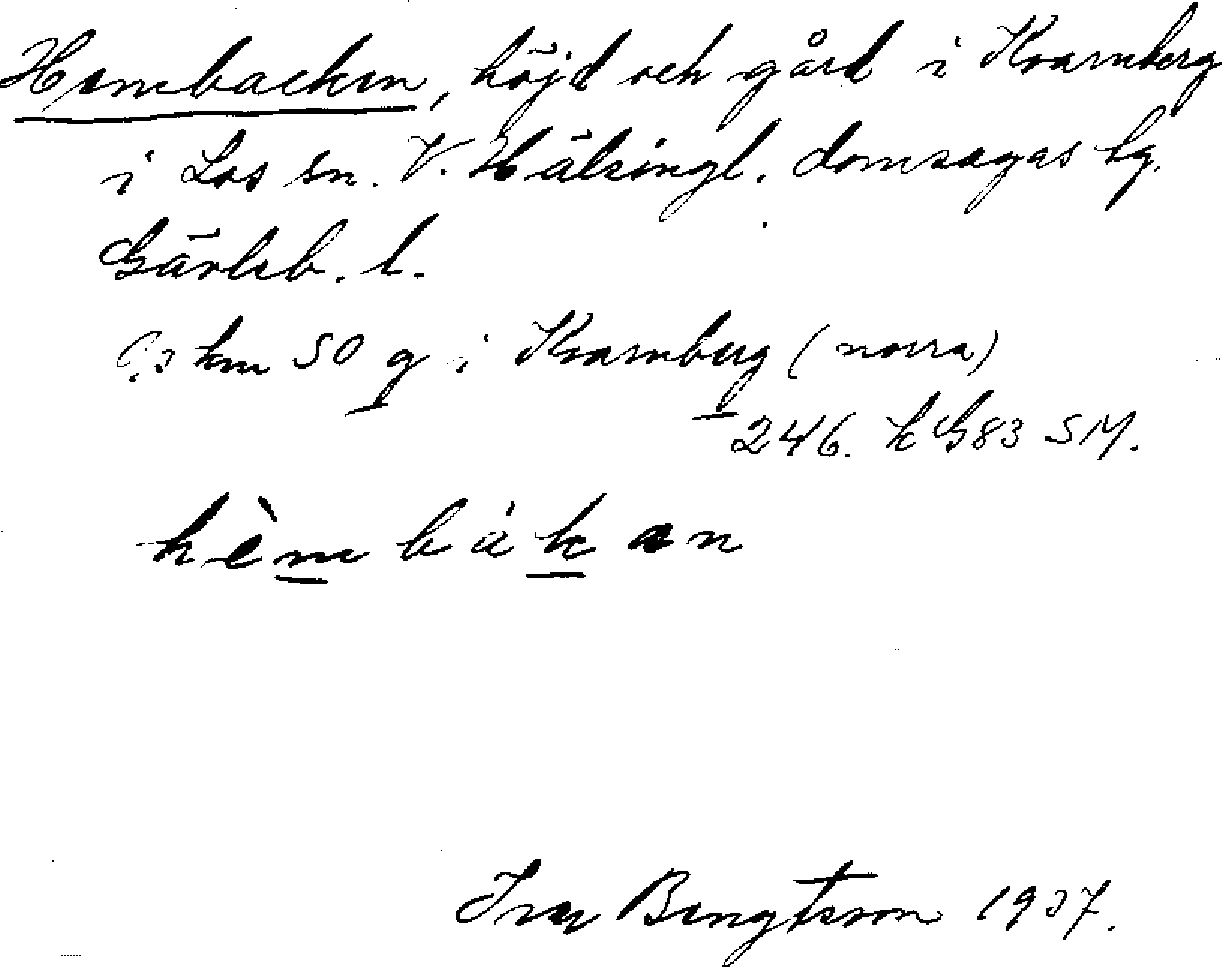 Hembacken, höjd och gård i Kvarnberg
i Los sn. V. Hälsingl. domsagas tg.
Gävleb. l.
0,3 km SO g i Kvarnberg (norra)
246. k G83 SM.
hèmbàkan
Ivar Bengtsson 1937.